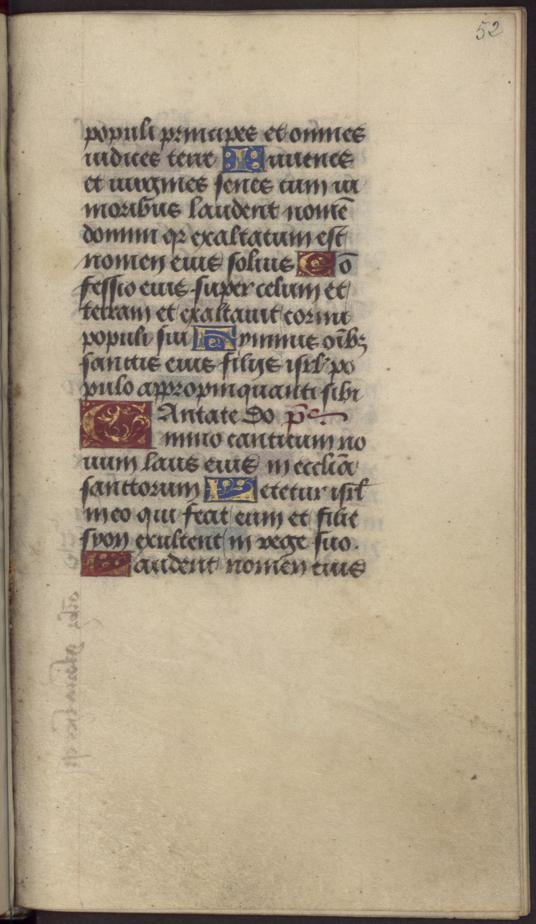 52
populi principes et omnes
iudices terre Iuuenes
et uirgines senes cum iu
nioribus laudent nomē
domini qr exaltatum est
nomen eius solius Cō
fessio eius super celum et
terram et exaltauit cornu
populi sui Hymnus oībꝫ
sanctis eius filijs isrl̄ po
pulo appropinquanti sibi
CAntate Do pš
mino canticum no
uum laus eius in eccliā
sanctorum Letetur isrl̄
in eo qui fecit eum et filie
syon exultent in rege suo.
Laudent nomen eius